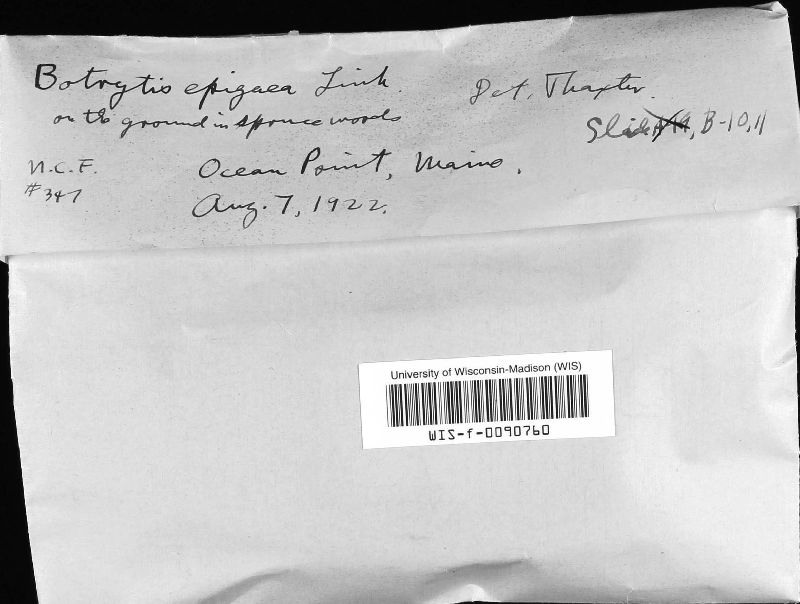 Botrytis epigaea Link.
Det. Thaxter.
on the ground in spruce woods
Slide B-10, 11
N.C.F.
#347
Ocean Point, Maine.
Aug. 7, 1922.
University of Wisconsin-Madison (WIS)
WIS-f-0090760